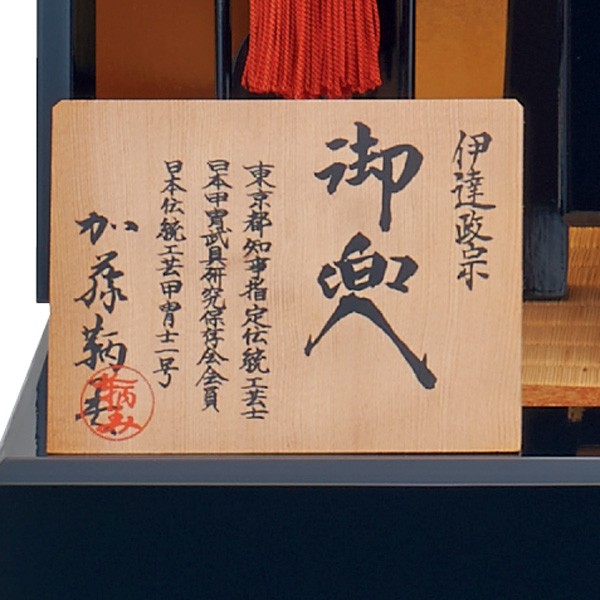 伊達政宗
御兜
東京都知事指定伝統工芸士
日本甲冑武具研究保存会会員
日本伝統工芸甲冑士一号
加藤鞆美